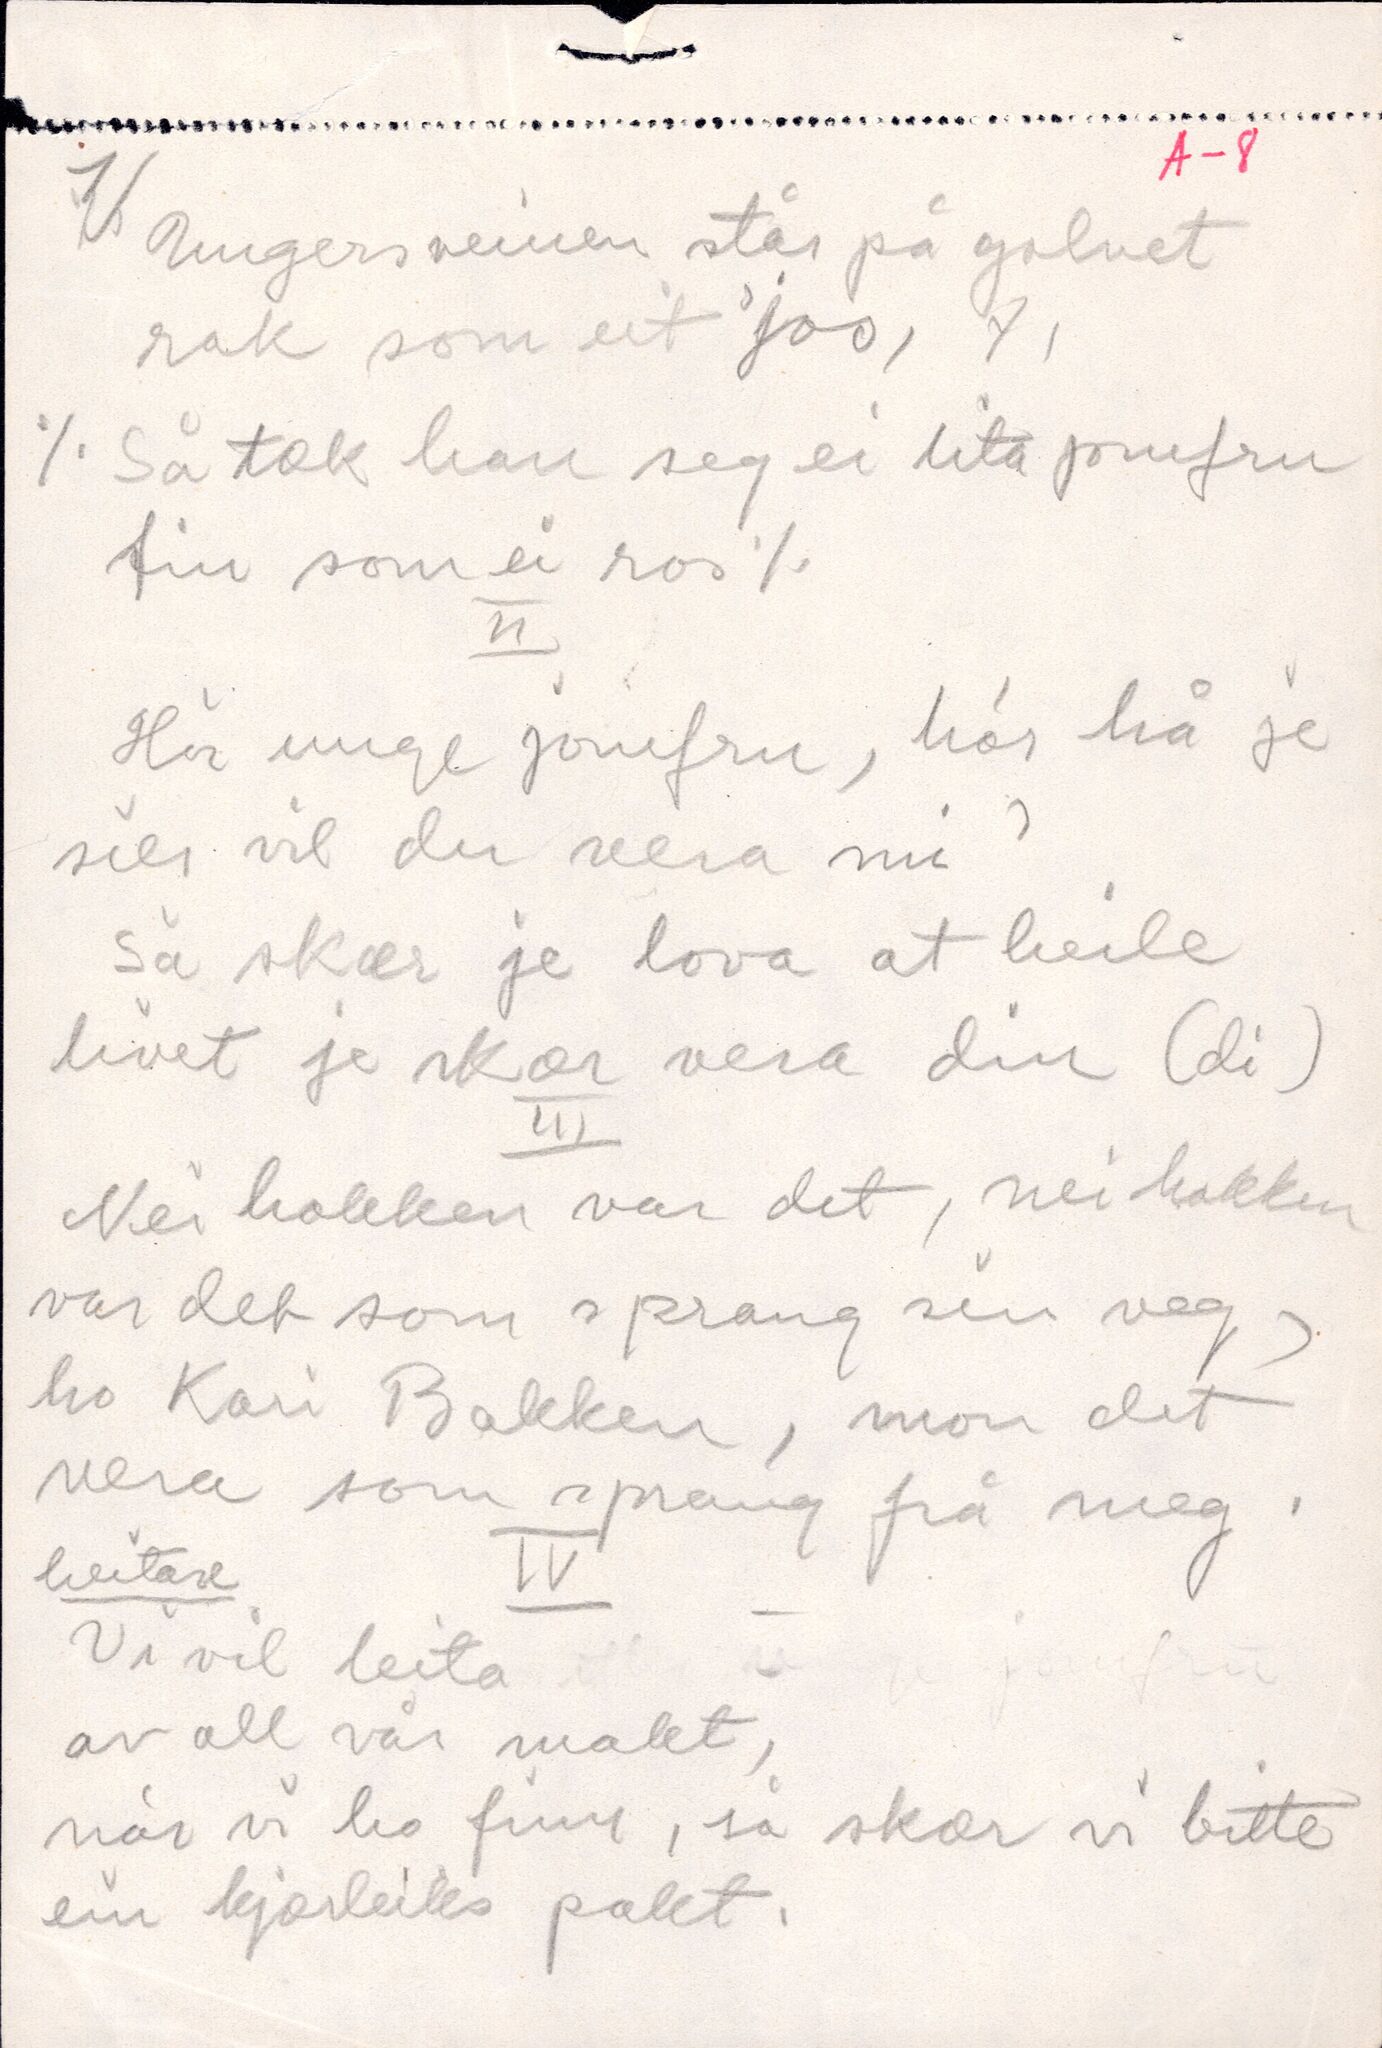 A-8
1/ Ungersveinen står på golvet
rak som eit jos, 7,
·/. Så tok han seg ei lita jomfru
fin som ei ros ·/.
II
Hör unge jomfru, hör hå je
sier vil du vera mi?
Så skær je lova at heile
livet je skær vera din (di)
III
Nei hokken var det, nei hokken
var det som sprang sin veg,
ho Kari Bakken, mon det
vera som sprang frå meg.
IV
leitæ
Vi vil leita jomfru
av all vår makt,
når vi ho finn, så skær vi bitte
ein kjærleiks pakt.